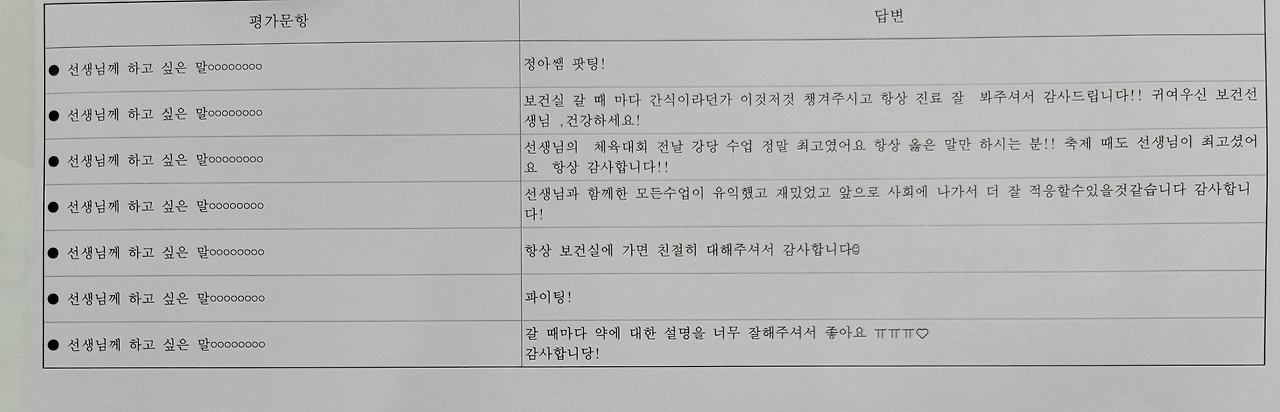 평가문항
답변
● 선생님께 하고 싶은 말○○○○○○○○
정아쌤 팟팅!
● 선생님께 하고 싶은 말○○○○○○○○
보건실 갈 때 마다 간식이라던가 이것저것 챙겨주시고 항상 진료 잘  봐주셔서 감사드립니다!! 귀여우신 보건선
생님 ,건강하세요!
● 선생님께 하고 싶은 말○○○○○○○○
선생님의  체육대회 전날 강당 수업 정말 최고였어요 항상 옳은 말만 하시는 분!! 축제 때도 선생님이 최고셨어
요  항상 감사합니다!!
● 선생님께 하고 싶은 말○○○○○○○○
선생님과 함께한 모든수업이 유익했고 재밌었고 앞으로 사회에 나가서 더 잘 적응할수있을것같습니다 감사합니
다!
● 선생님께 하고 싶은 말○○○○○○○○
항상 보건실에 가면 친절히 대해주셔서 감사합니다☺
● 선생님께 하고 싶은 말○○○○○○○○
파이팅!
● 선생님께 하고 싶은 말○○○○○○○○
갈 때마다 약에 대한 설명을 너무 잘해주셔서 좋아요 ㅠㅠㅠ♡
감사합니당!